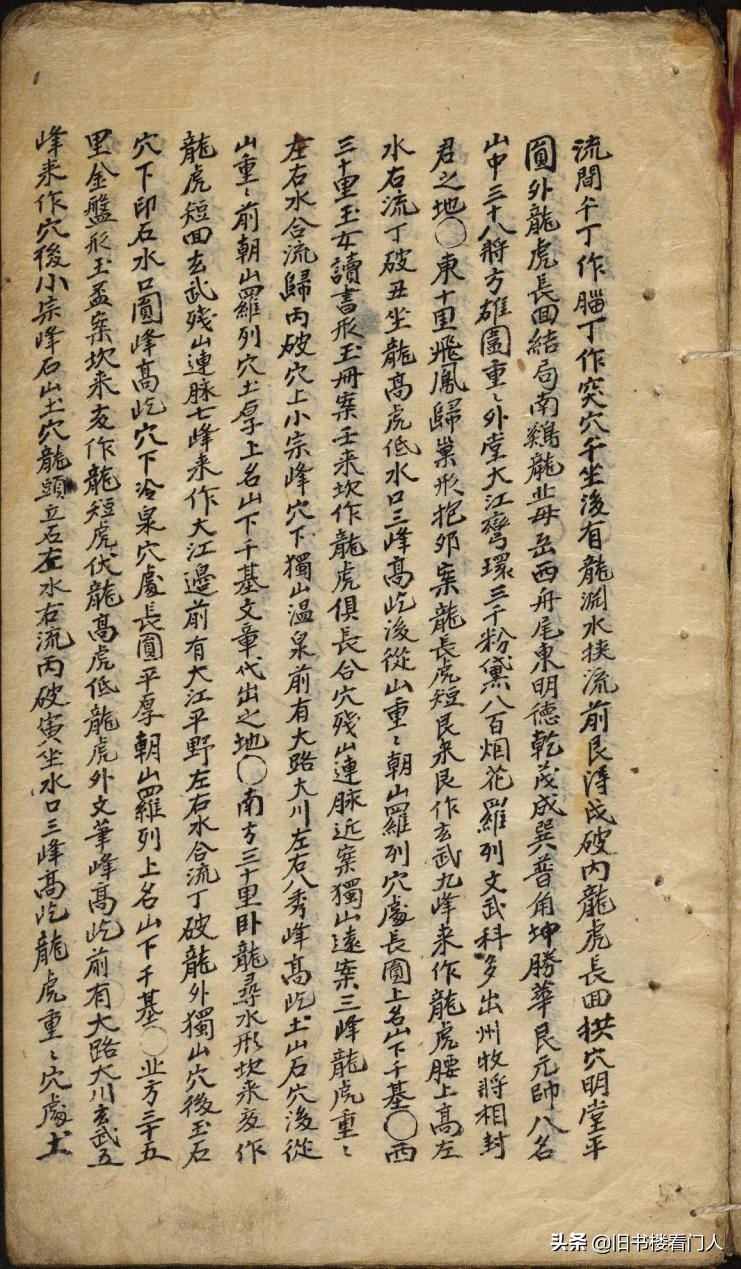 流間午丁作腦丁作突穴午坐後有龍淵水挾流前艮淂戌破内龍虎長囬拱穴明堂平
圓外龍虎長囬結局南鷄龍北母岳西舟尾東明德乾茂成巽普角坤勝華艮元帥八名
山中三十八將方雄圍重〻外堂大江彎環三千粉黛八百烟花羅列文武科多出州牧將相封
君之地〇東十里飛鳳歸巢形抱卵案龍長虎短艮来艮作玄武九峰来作龍虎腰上高左
水右流丁破丑坐龍高虎低水口三峰高屹後從山重〻朝山羅列穴處長圓上名山下千基〇西
三十里玉女讀書形玉冊案壬来坎作龍虎俱長合穴殘山連脉近案獨山遠案三峰龍虎重〻
左右水合流歸丙破穴上小宗峰穴下獨山温泉前有大路大川左右八秀峰高屹土山石穴後從
山重〻前朝山羅列穴土厚上名山下千基文章代出之地〇南方三十里卧龍尋水形坎来亥作
龍虎短囬玄武殘山連脉七峰来作大江邊前有大江平野左右水合流丁破龍外獨山穴後玉石
穴下印石水口圓峰高屹穴下冷泉穴處長圓平厚朝山羅列上名山下千基〇北方三十五
里金盤形玉盃案坎来亥作龍短虎伏龍高虎低龍虎外文筆峰高屹前有大路大川玄武五
峰来作穴後小宗峰石山土穴龍頭立石左水右流丙破寅坐水口三峰高屹龍虎重〻穴處土
头条 @旧书楼看门人